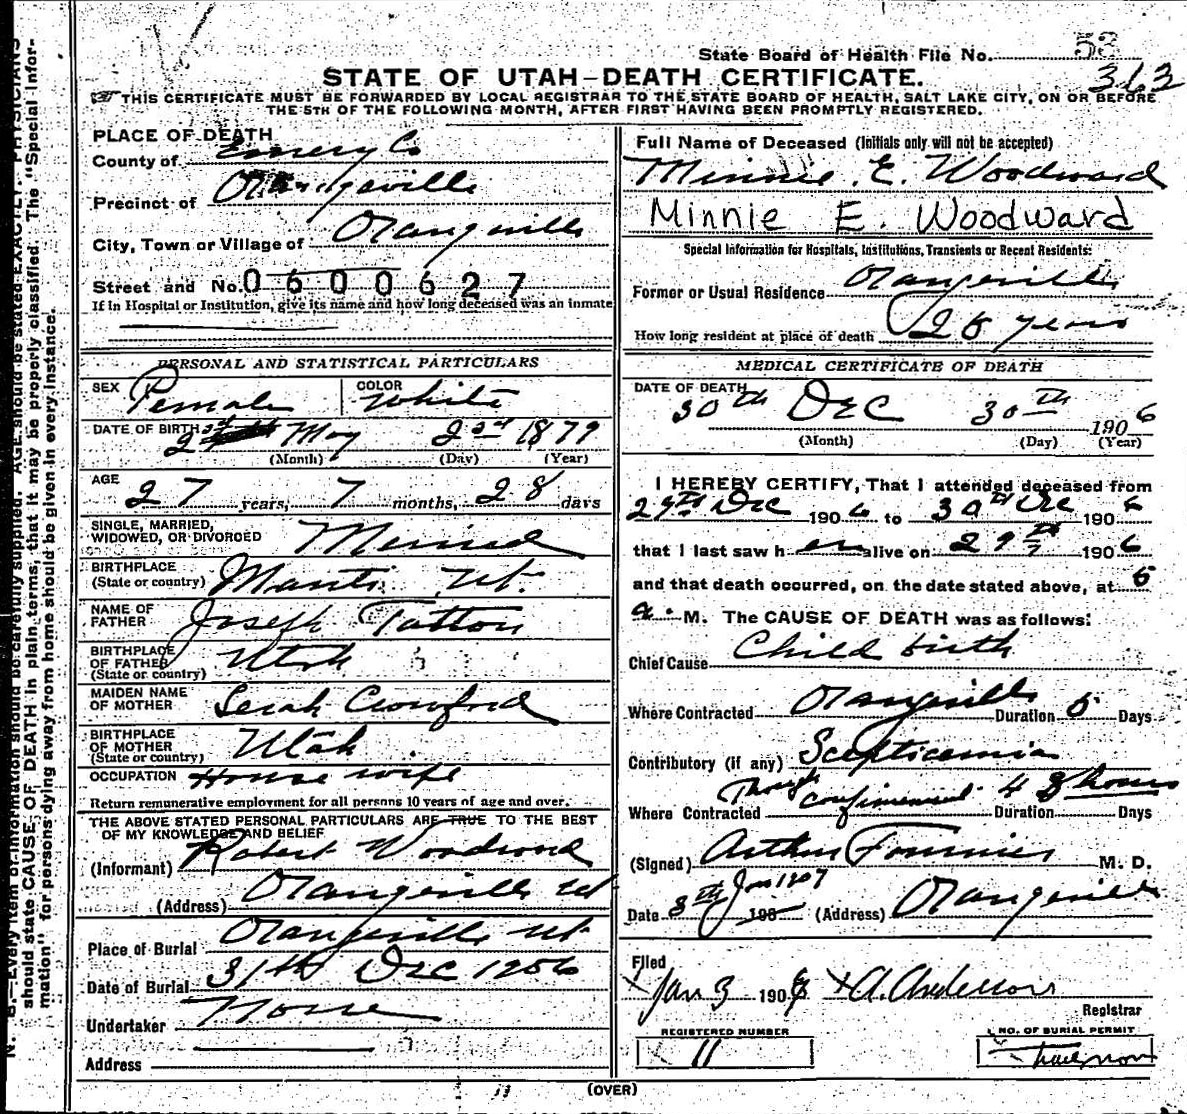 State Board of Health File No. 53
313
STATE OF UTAH—DEATH CERTIFICATE.
THIS CERTIFICATE MUST BE FORWARDED BY LOCAL REGISTRAR TO THE STATE BOARD OF HEALTH, SALT LAKE CITY, ON OR BEFORE
THE 5TH OF THE FOLLOWING MONTH, AFTER FIRST HAVING BEEN PROMPTLY REGISTERED.
PLACE OF DEATH
County of Emery Co
Precinct of Orangeville
City, Town or Village of Orangeville
Street and No. 0600627
If in Hospital or Institution, give its name and how long deceased was an inmate
PERSONAL AND STATISTICAL PARTICULARS
SEX Female COLOR White
DATE OF BIRTH May 2nd 1879
(Month) (Day) (Year)
AGE 27 years, 7 months, 28 days
SINGLE, MARRIED,
WIDOWED, OR DIVORCED Married
BIRTHPLACE
(State or country) Manti Ut.
NAME OF
FATHER Joseph Tatton
BIRTHPLACE
OF FATHER
(State or country) Utah
MAIDEN NAME
OF MOTHER Serah Crowford
BIRTHPLACE
OF MOTHER
(State or country) Utah
OCCUPATION House wife
Return remunerative employment for all persons 10 years of age and over.
THE ABOVE STATED PERSONAL PARTICULARS ARE TRUE TO THE BEST
OF MY KNOWLEDGE AND BELIEF
(Informant) Robert Woodward
(Address) Orangeville Ut
Place of Burial Orangeville Ut.
Date of Burial 31th Dec 1906
Undertaker None
Address
Full Name of Deceased (Initials only will not be accepted)
Minnie E. Woodward
Minnie E. Woodward
Special Information for Hospitals, Institutions, Transients or Recent Residents:
Former or Usual Residence Orangeville
How long resident at place of death 26 years
MEDICAL CERTIFICATE OF DEATH
DATE OF DEATH 30th Dec 30th 1906
(Month) (Day) (Year)
I HEREBY CERTIFY, That I attended deceased from
29th Dec 1906 to 30th Dec 1906
that I last saw her alive on 29th 1906
and that death occurred, on the date stated above, at 5
a. M. The CAUSE OF DEATH was as follows:
Chief Cause Child birth
Where Contracted Orangeville Duration 5 Days
Contributory (if any) Scepticemia
Where Contracted 48 hours Duration Days
(Signed) Arthur Fournier M. D.
Date 3th Jan 1907 190 (Address) Orangeville
Filed
Jan 3 190 A. Anderson
Registrar
REGISTERED NUMBER
11
NO. OF BURIAL PERMIT
(OVER)
11
N. B.—Every item of information should be carefully supplied. AGE should be stated EXACTLY. PHYSICIANS
should state CAUSE OF DEATH in plain terms, that it may be properly classified. The "Special Infor-
mation" for persons dying away from home should be given in every instance.